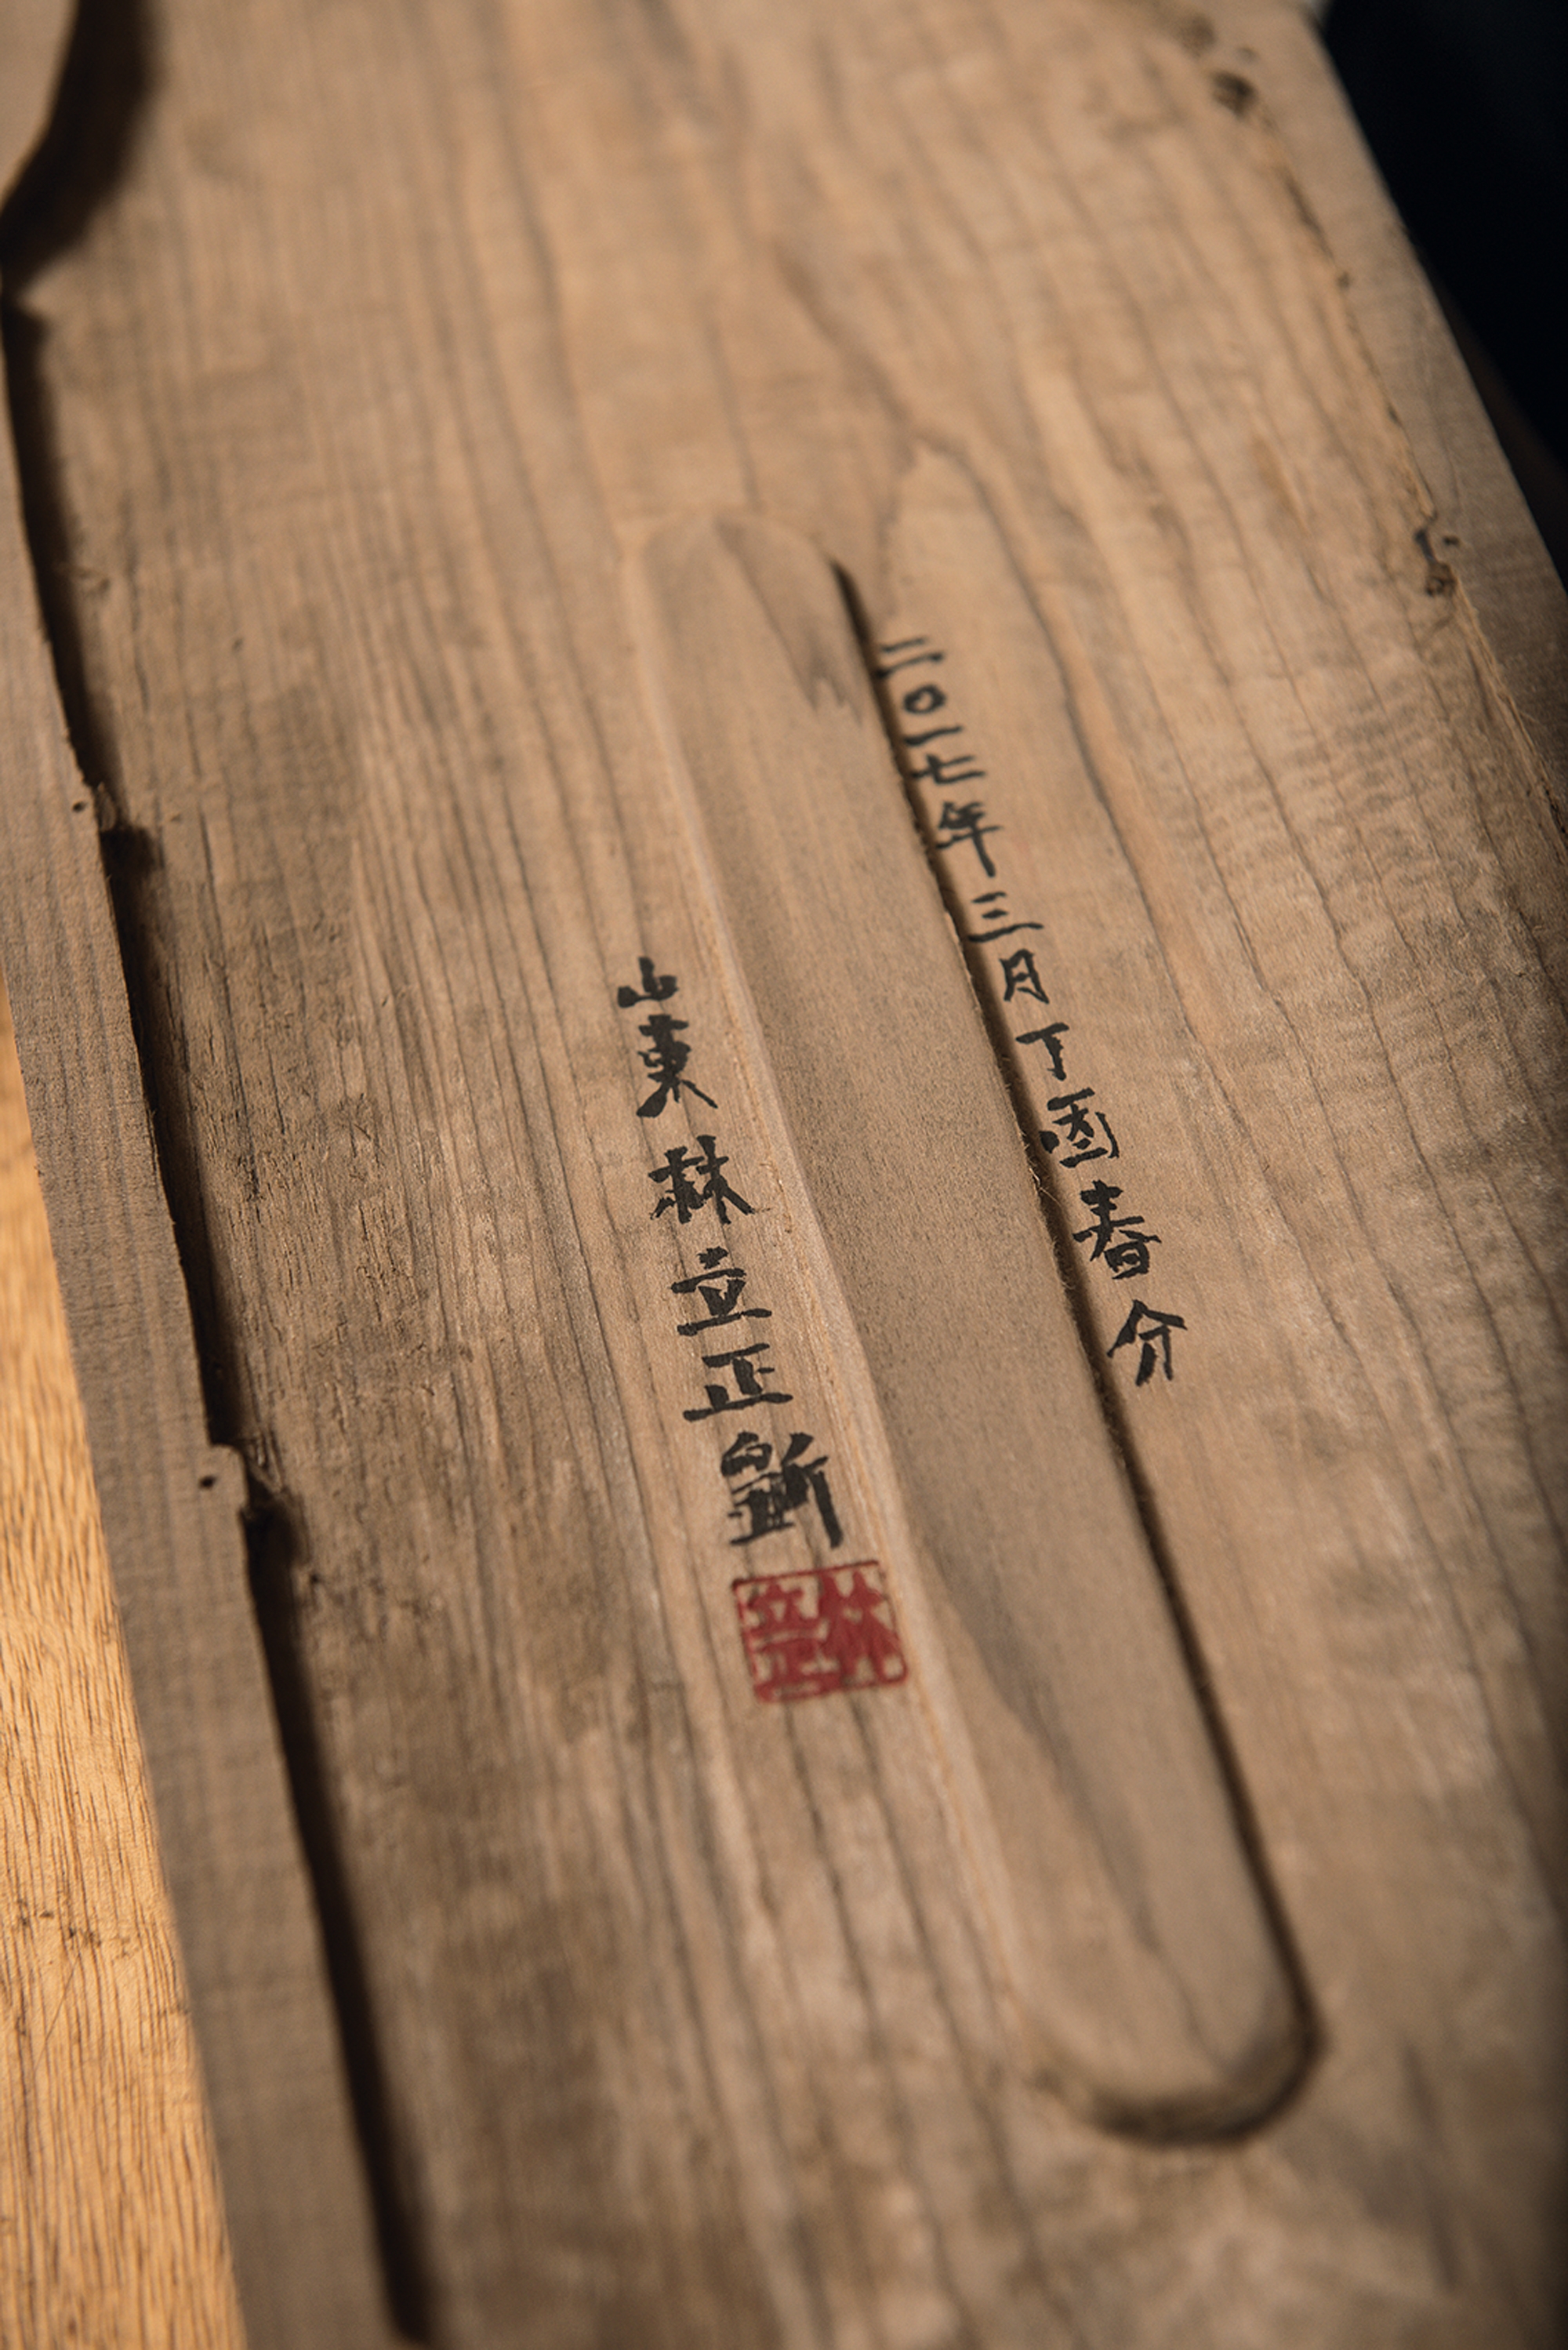 二〇一七年三月丁酉春分
山東林立正斲
林立正